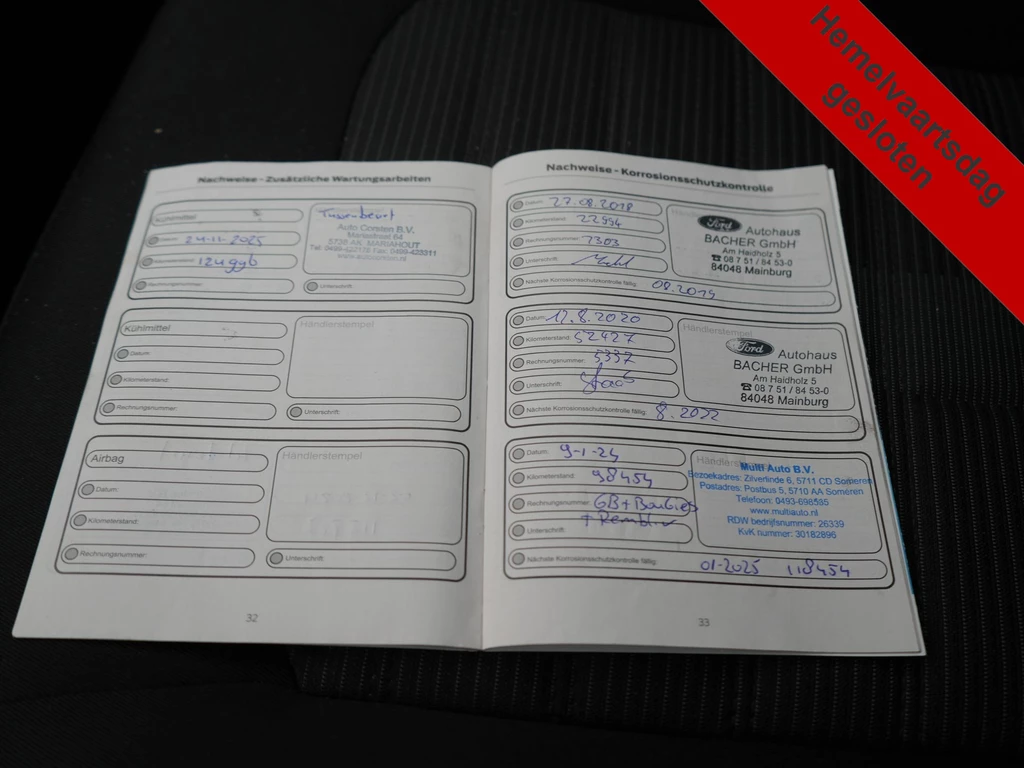 Hemelvaartsdag
gesloten
Nachweise - Zusätzliche Wartungsarbeiten
Kühlmittel
Datum: 24-11-2025
Kilometerstand:
Rechnungsnummer:
Auto Corsten B.V.
Mariastraat 64
5738 AK MARIAHOUT
Unterschrift:
Kühlmittel
Händlerstempel
Datum:
Kilometerstand:
Rechnungsnummer:
Unterschrift:
Airbag
Händlerstempel
Datum:
Kilometerstand:
Rechnungsnummer:
Unterschrift:
32
Nachweise - Korrosionsschutzkontrolle
Datum: 27.08.2018
Kilometerstand: 22994
Rechnungsnummer: 7303
Unterschrift:
Nächste Korrosionsschutzkontrolle fällig: 08.2019
Ford Autohaus
BACHER GmbH
Am Haidholz 5
☎ 08 7 51 / 84 53-0
84048 Mainburg
Datum: 17.8.2020
Kilometerstand: 52427
Rechnungsnummer: 5337
Unterschrift:
Nächste Korrosionsschutzkontrolle fällig: 8.2022
Händlerstempel
Ford Autohaus
BACHER GmbH
Am Haidholz 5
☎ 08 7 51 / 84 53-0
84048 Mainburg
Datum: 9-1-24
Kilometerstand: 98454
Rechnungsnummer: GB +
Unterschrift:
Nächste Korrosionsschutzkontrolle fällig: 01-2025 118454
Multi Auto B.V.
Bezoekadres: Zilverlinde 6, 5711 CD Someren
Postadres: Postbus 5, 5710 AA Someren
Telefoon: 0493-698585
www.multiauto.nl
RDW bedrijfsnummer: 26339
KvK nummer: 30182896
33